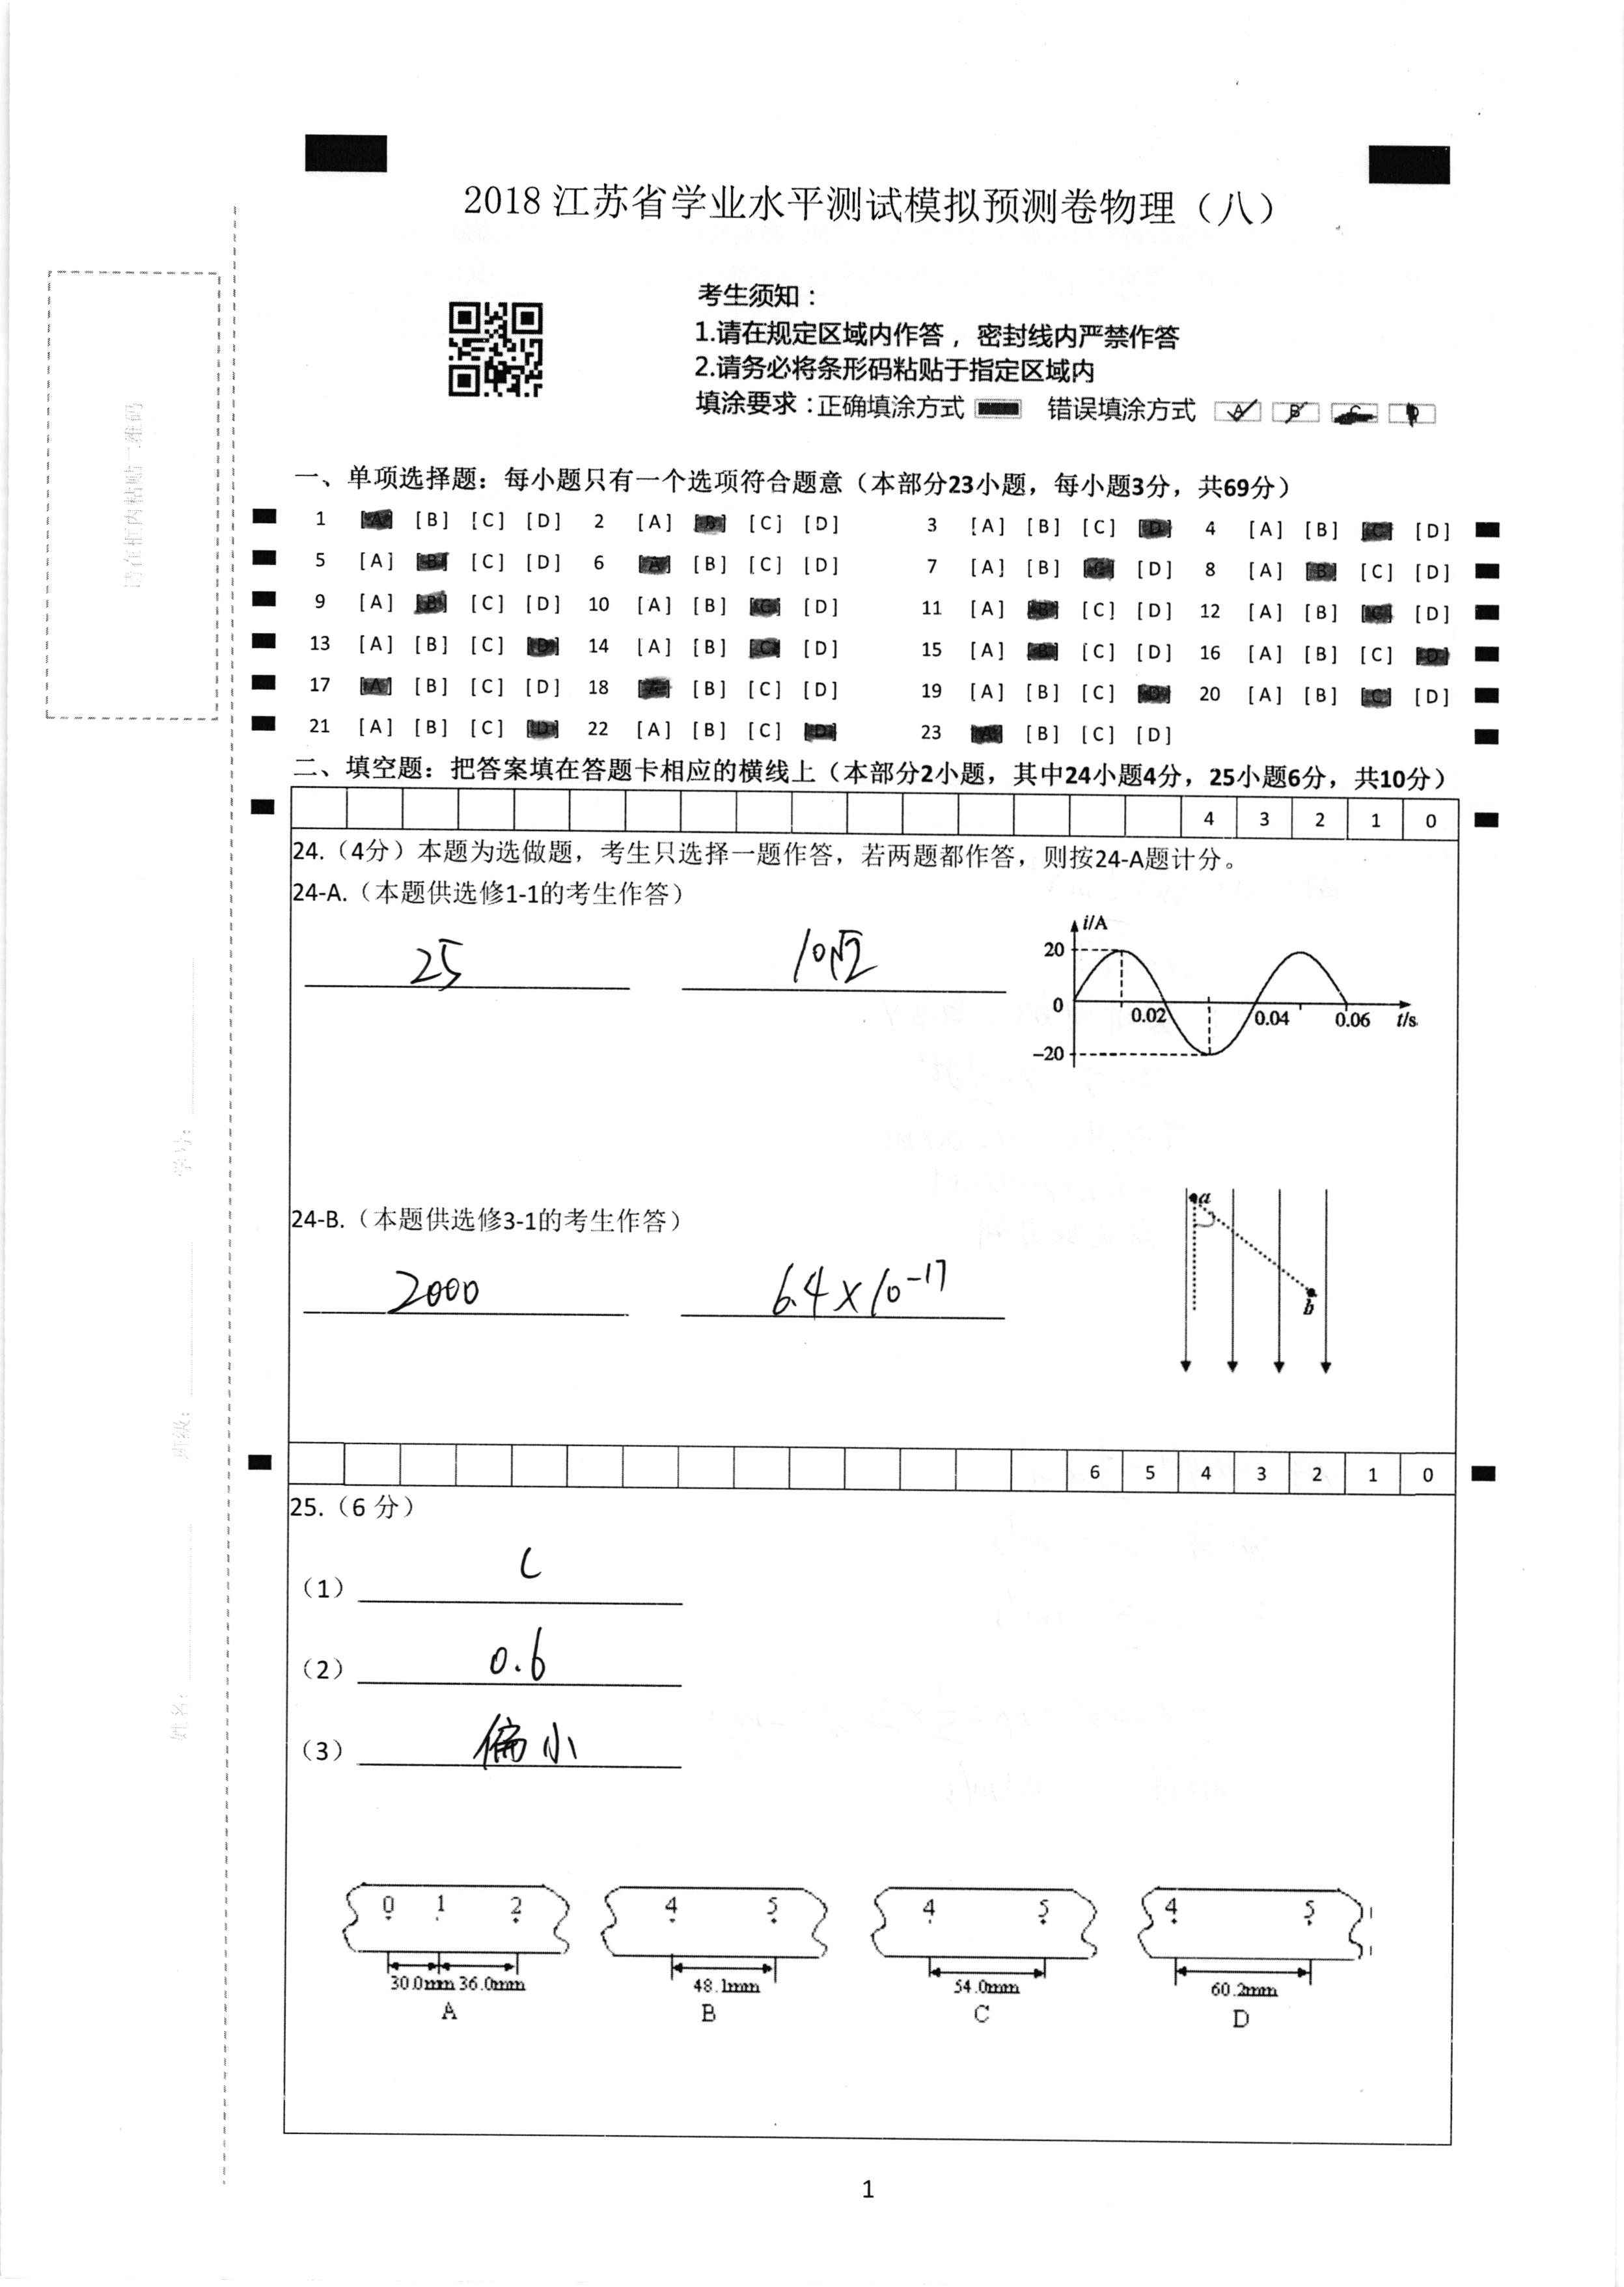 2018 江苏省学业水平测试模拟预测卷物理（八）
考生须知：
1.请在规定区域内作答，密封线内严禁作答
2.请务必将条形码粘贴于指定区域内
填涂要求：正确填涂方式 错误填涂方式 A B C D
请在框内粘贴二维码
学号：
班级：
姓名：
一、单项选择题：每小题只有一个选项符合题意（本部分23小题，每小题3分，共69分）
1 [A] [B] [C] [D] 2 [A] [B] [C] [D] 3 [A] [B] [C] [D] 4 [A] [B] [C] [D]
5 [A] [B] [C] [D] 6 [A] [B] [C] [D] 7 [A] [B] [C] [D] 8 [A] [B] [C] [D]
9 [A] [B] [C] [D] 10 [A] [B] [C] [D] 11 [A] [B] [C] [D] 12 [A] [B] [C] [D]
13 [A] [B] [C] [D] 14 [A] [B] [C] [D] 15 [A] [B] [C] [D] 16 [A] [B] [C] [D]
17 [A] [B] [C] [D] 18 [A] [B] [C] [D] 19 [A] [B] [C] [D] 20 [A] [B] [C] [D]
21 [A] [B] [C] [D] 22 [A] [B] [C] [D] 23 [A] [B] [C] [D]
二、填空题：把答案填在答题卡相应的横线上（本部分2小题，其中24小题4分，25小题6分，共10分）
4 3 2 1 0
24.（4分）本题为选做题，考生只选择一题作答，若两题都作答，则按24-A题计分。
24-A.（本题供选修1-1的考生作答）
25 10√2
i/A
20
0 0.02 0.04 0.06 t/s
-20
24-B.（本题供选修3-1的考生作答）
2000 6.4×10⁻¹⁷
a
b
6 5 4 3 2 1 0
25.（6 分）
（1） C
（2） 0.6
（3） 偏小
0 1 2 4 5 4 5 4 5
30.0mm 36.0mm 48.1mm 54.0mm 60.2mm
A B C D
1